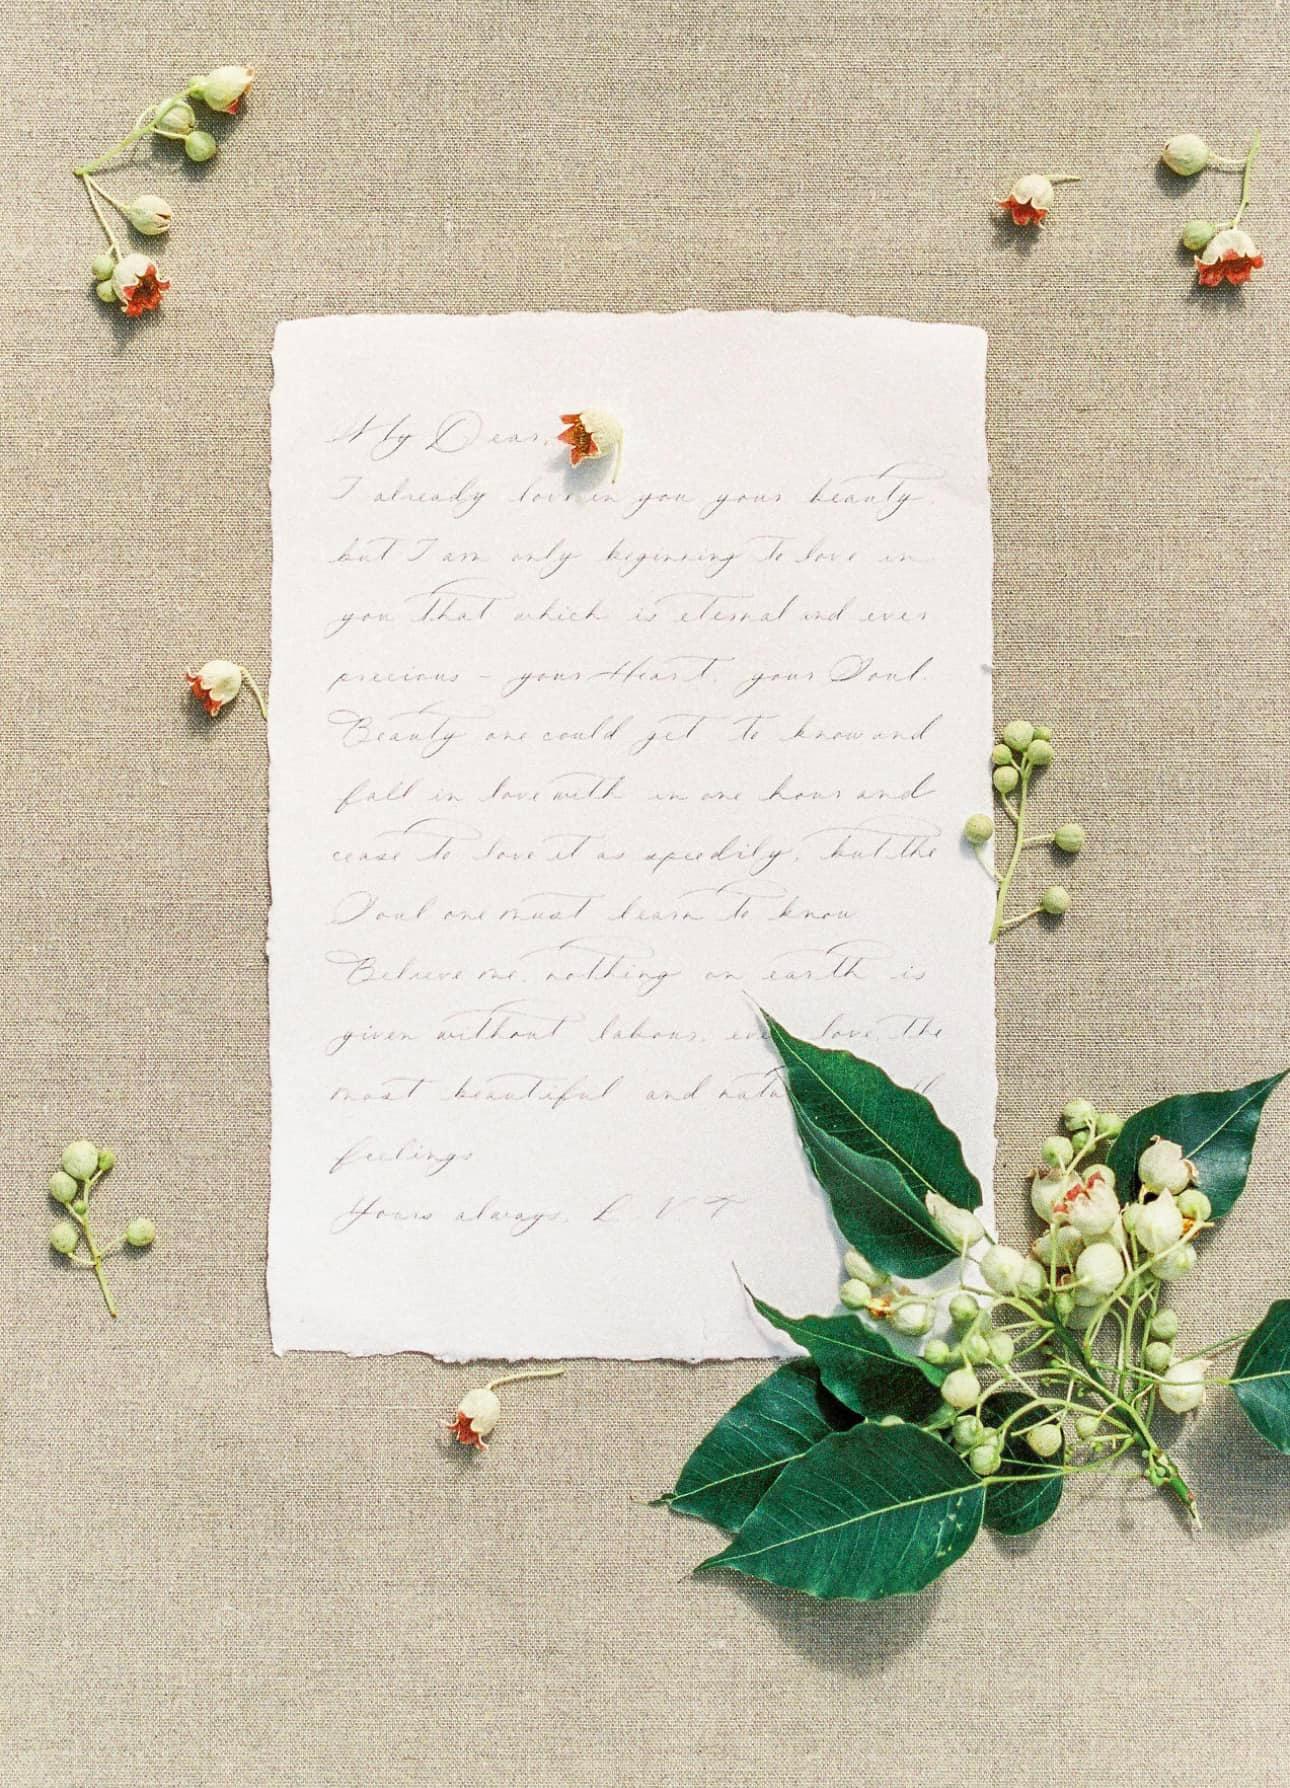 My Dear,
I already love in you your beauty,
but I am only beginning to love in
you that which is eternal and ever
precious - your Heart, your Soul.
Beauty one could get to know and
fall in love with in one hour and
cease to love it as speedily, but the
Soul one must learn to know
Believe me, nothing on earth is
given without labour, even love, the
most beautiful and natu
feelings
Yours always, L. V. T